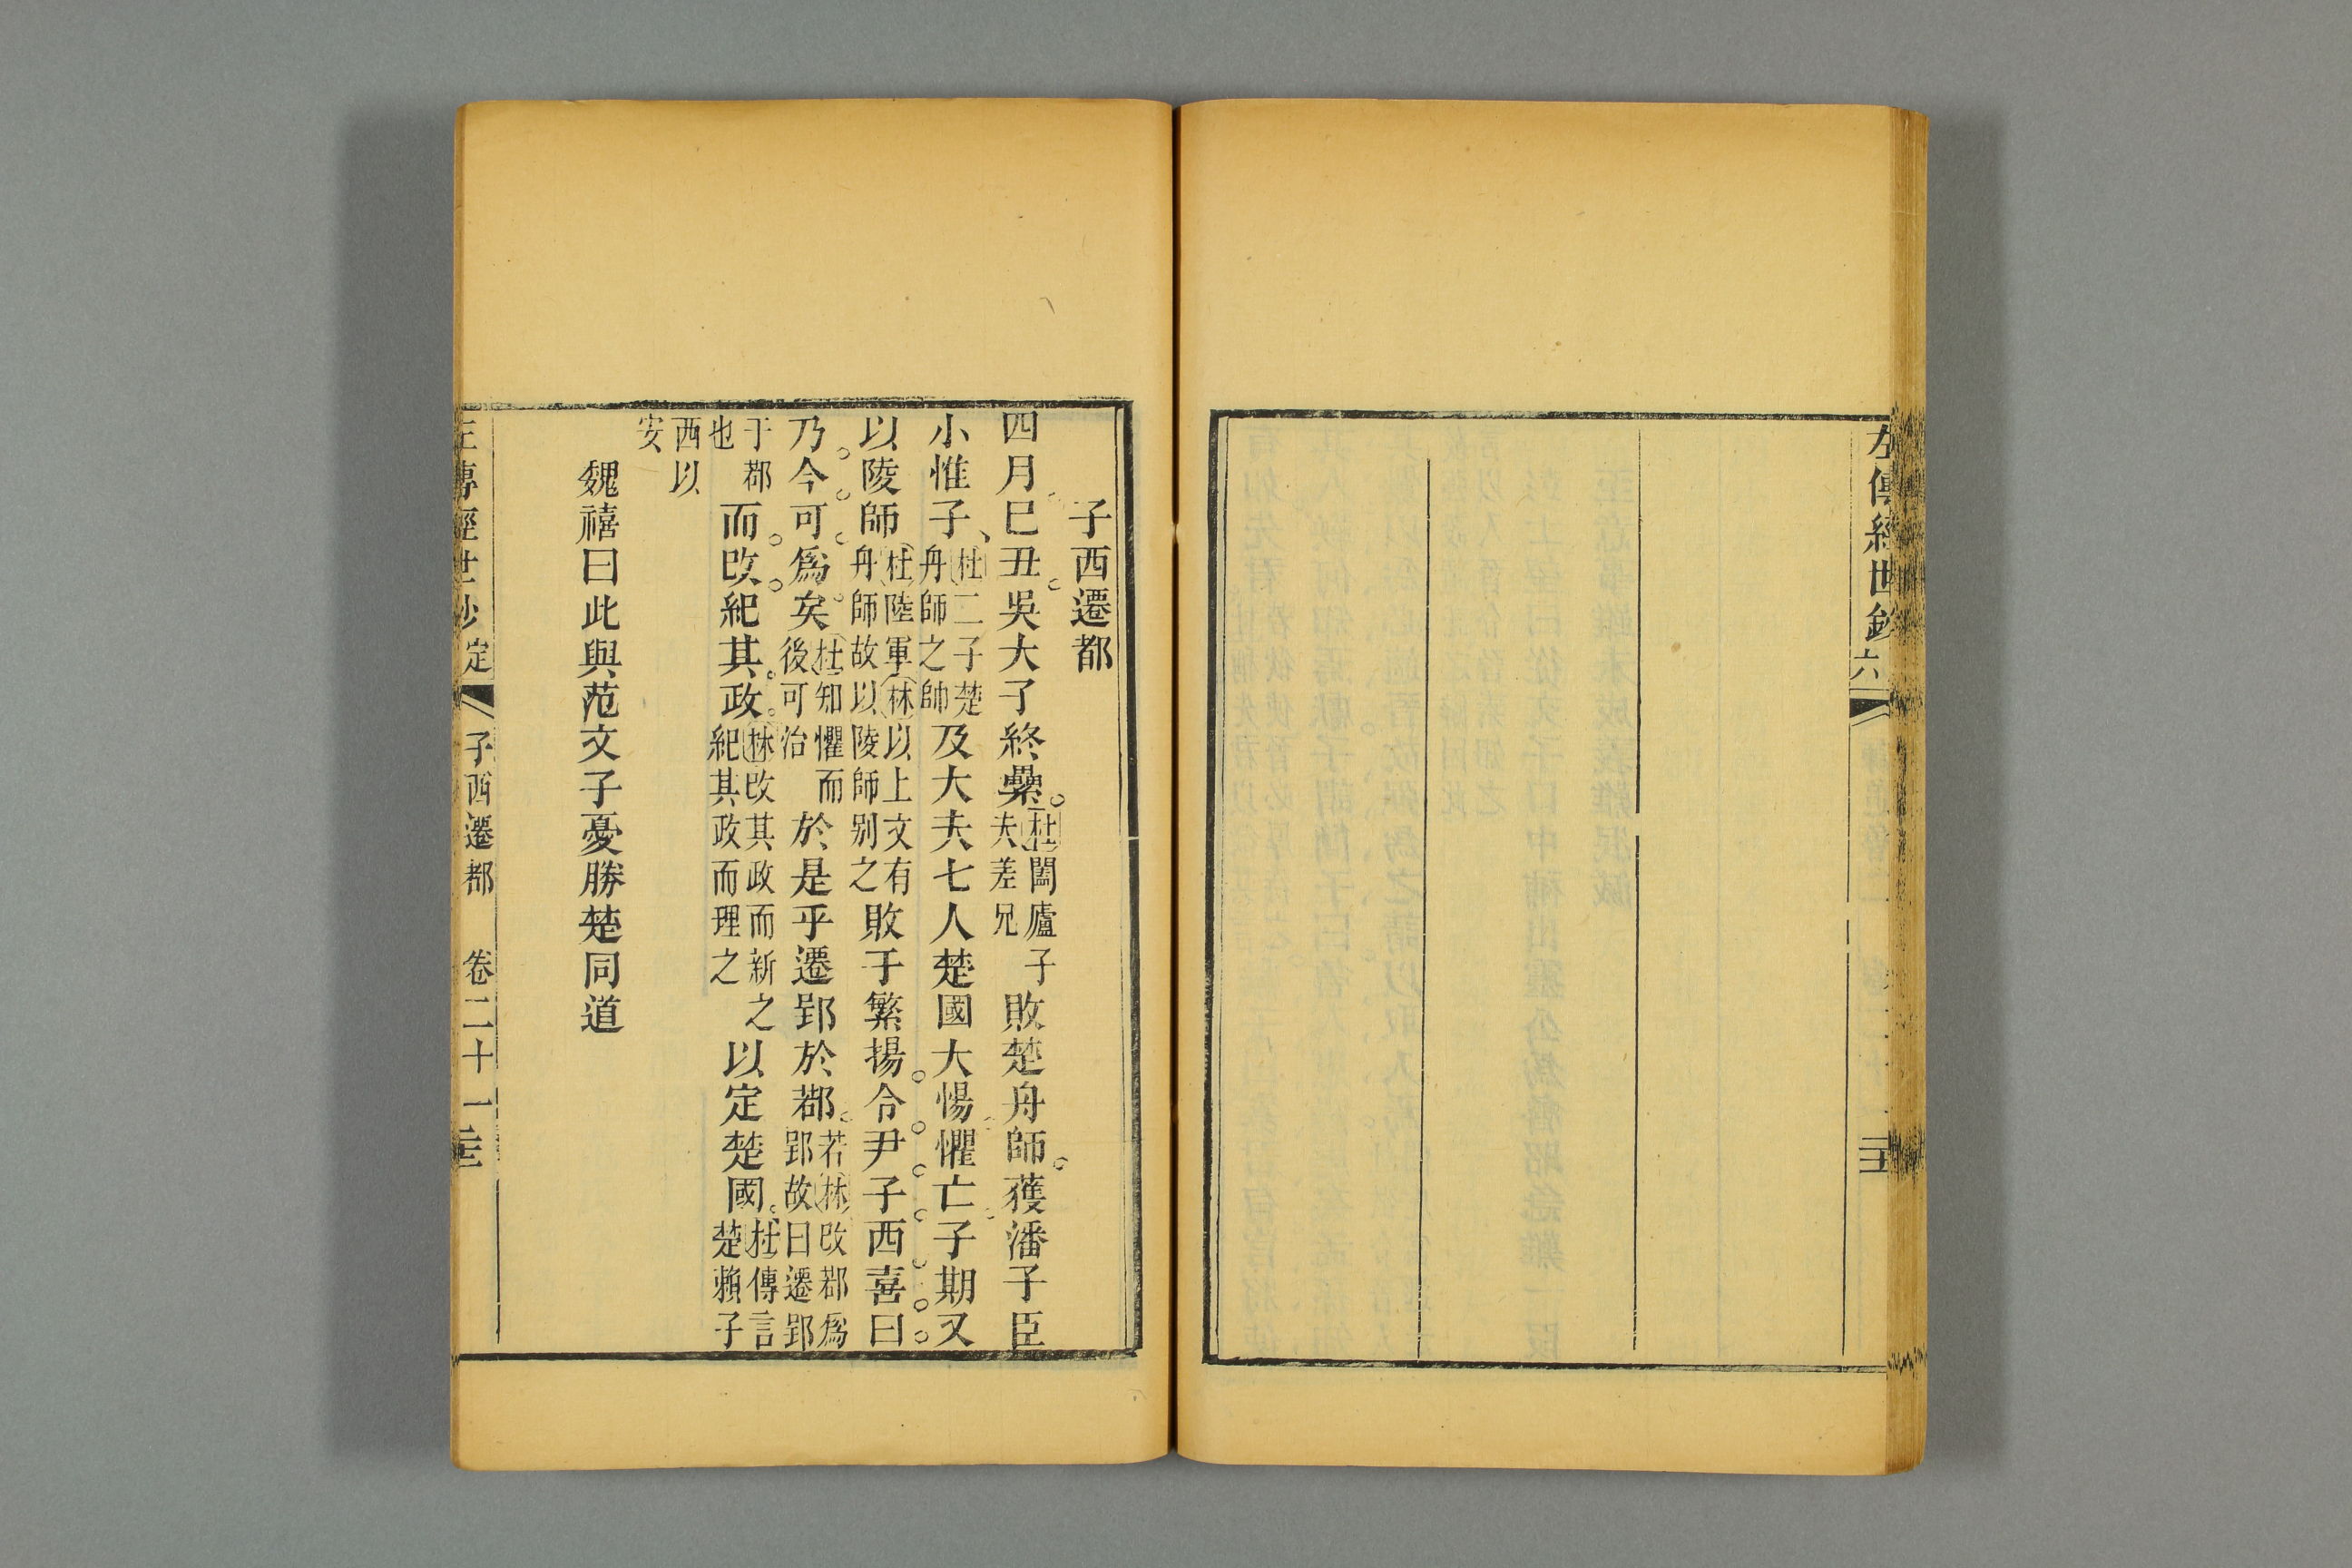 左傳經世鈔 六
子西遷都
四月巳丑吳大子終纍杜闔廬子夫差兄敗楚舟師獲潘子臣
小惟子杜二子楚舟師之帥及大夫七人楚國大惕懼亡子期又
以陵師杜陸軍林以上文有舟師故以陵師別之敗于繁揚令尹子西喜曰
乃今可爲矣杜知懼而後可治於是乎遷郢於鄀林改鄀爲郢故曰遷郢
于鄀也而改紀其政林改其政而新之紀其政而理之以定楚國杜傳言楚賴子
西以安
魏禧曰此與范文子憂勝楚同道
左傳經世鈔 定 子西遷都 卷二十一